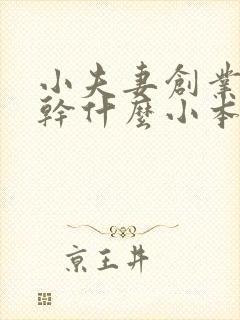 小夫妻創業
幹什麼小本
京王井